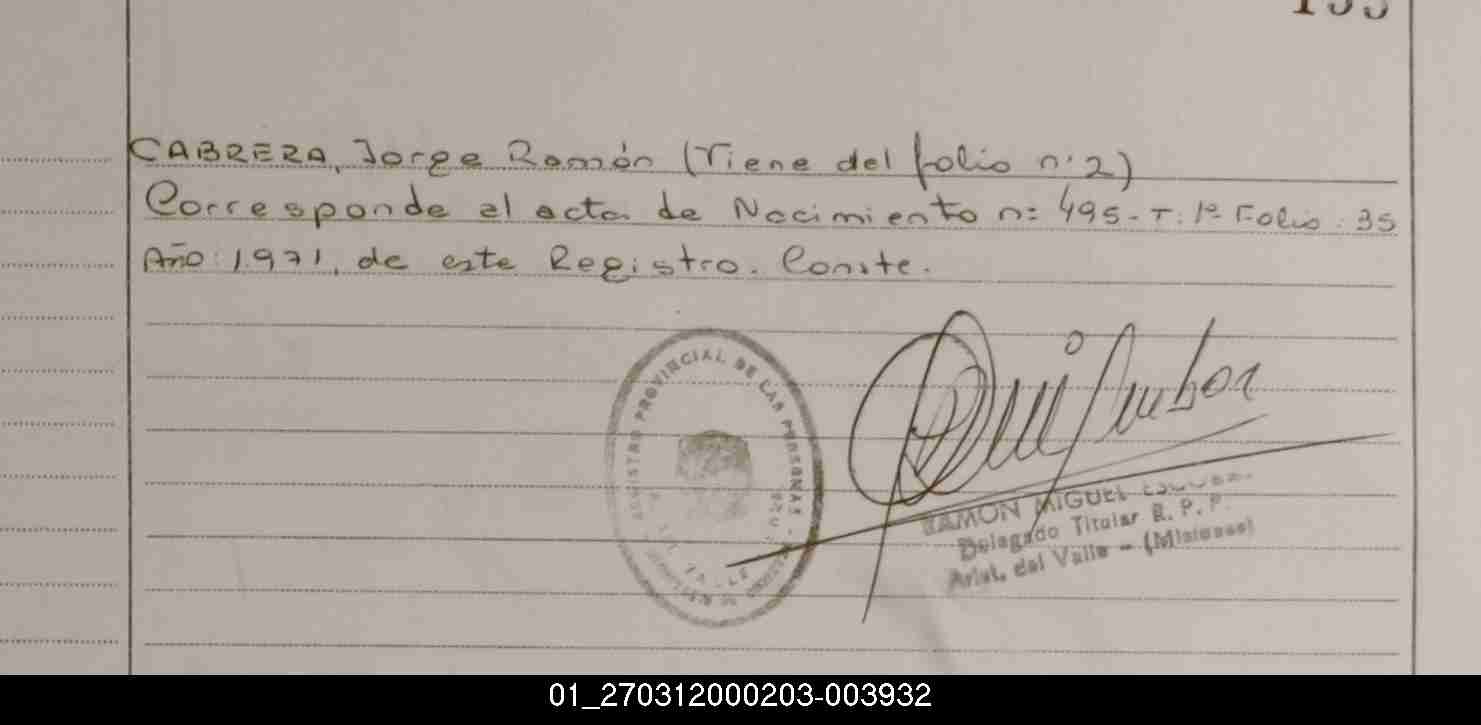 CABRERA, Jorge Ramón (Viene del folio n: 2)
Corresponde al acta de Nacimiento n: 495 - T: 1º Folio: 35
Año: 1.971, de este Registro. Conste.
REGISTRO PROVINCIAL DE LAS PERSONAS
RAMON MIGUEL
Delegado Titular R. P. P.
Arist. del Valle - (Misiones)
01_270312000203-003932